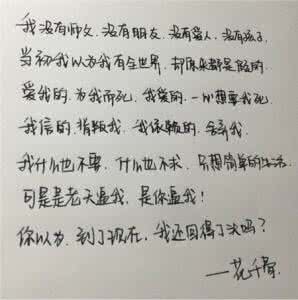 我没有师父，没有朋友，没有爱人，没有孩子，
当初我以为我有全世界，却原来都是假的。
爱我的，为我而死，我爱的，一心想要我死，
我信的，背叛我，我依赖的，舍弃我，
我什么也不要，什么也不求，只想简单的生活，
可是是老天逼我，是你逼我！
你以为，到了现在，我还回得了头吗？
——花千骨